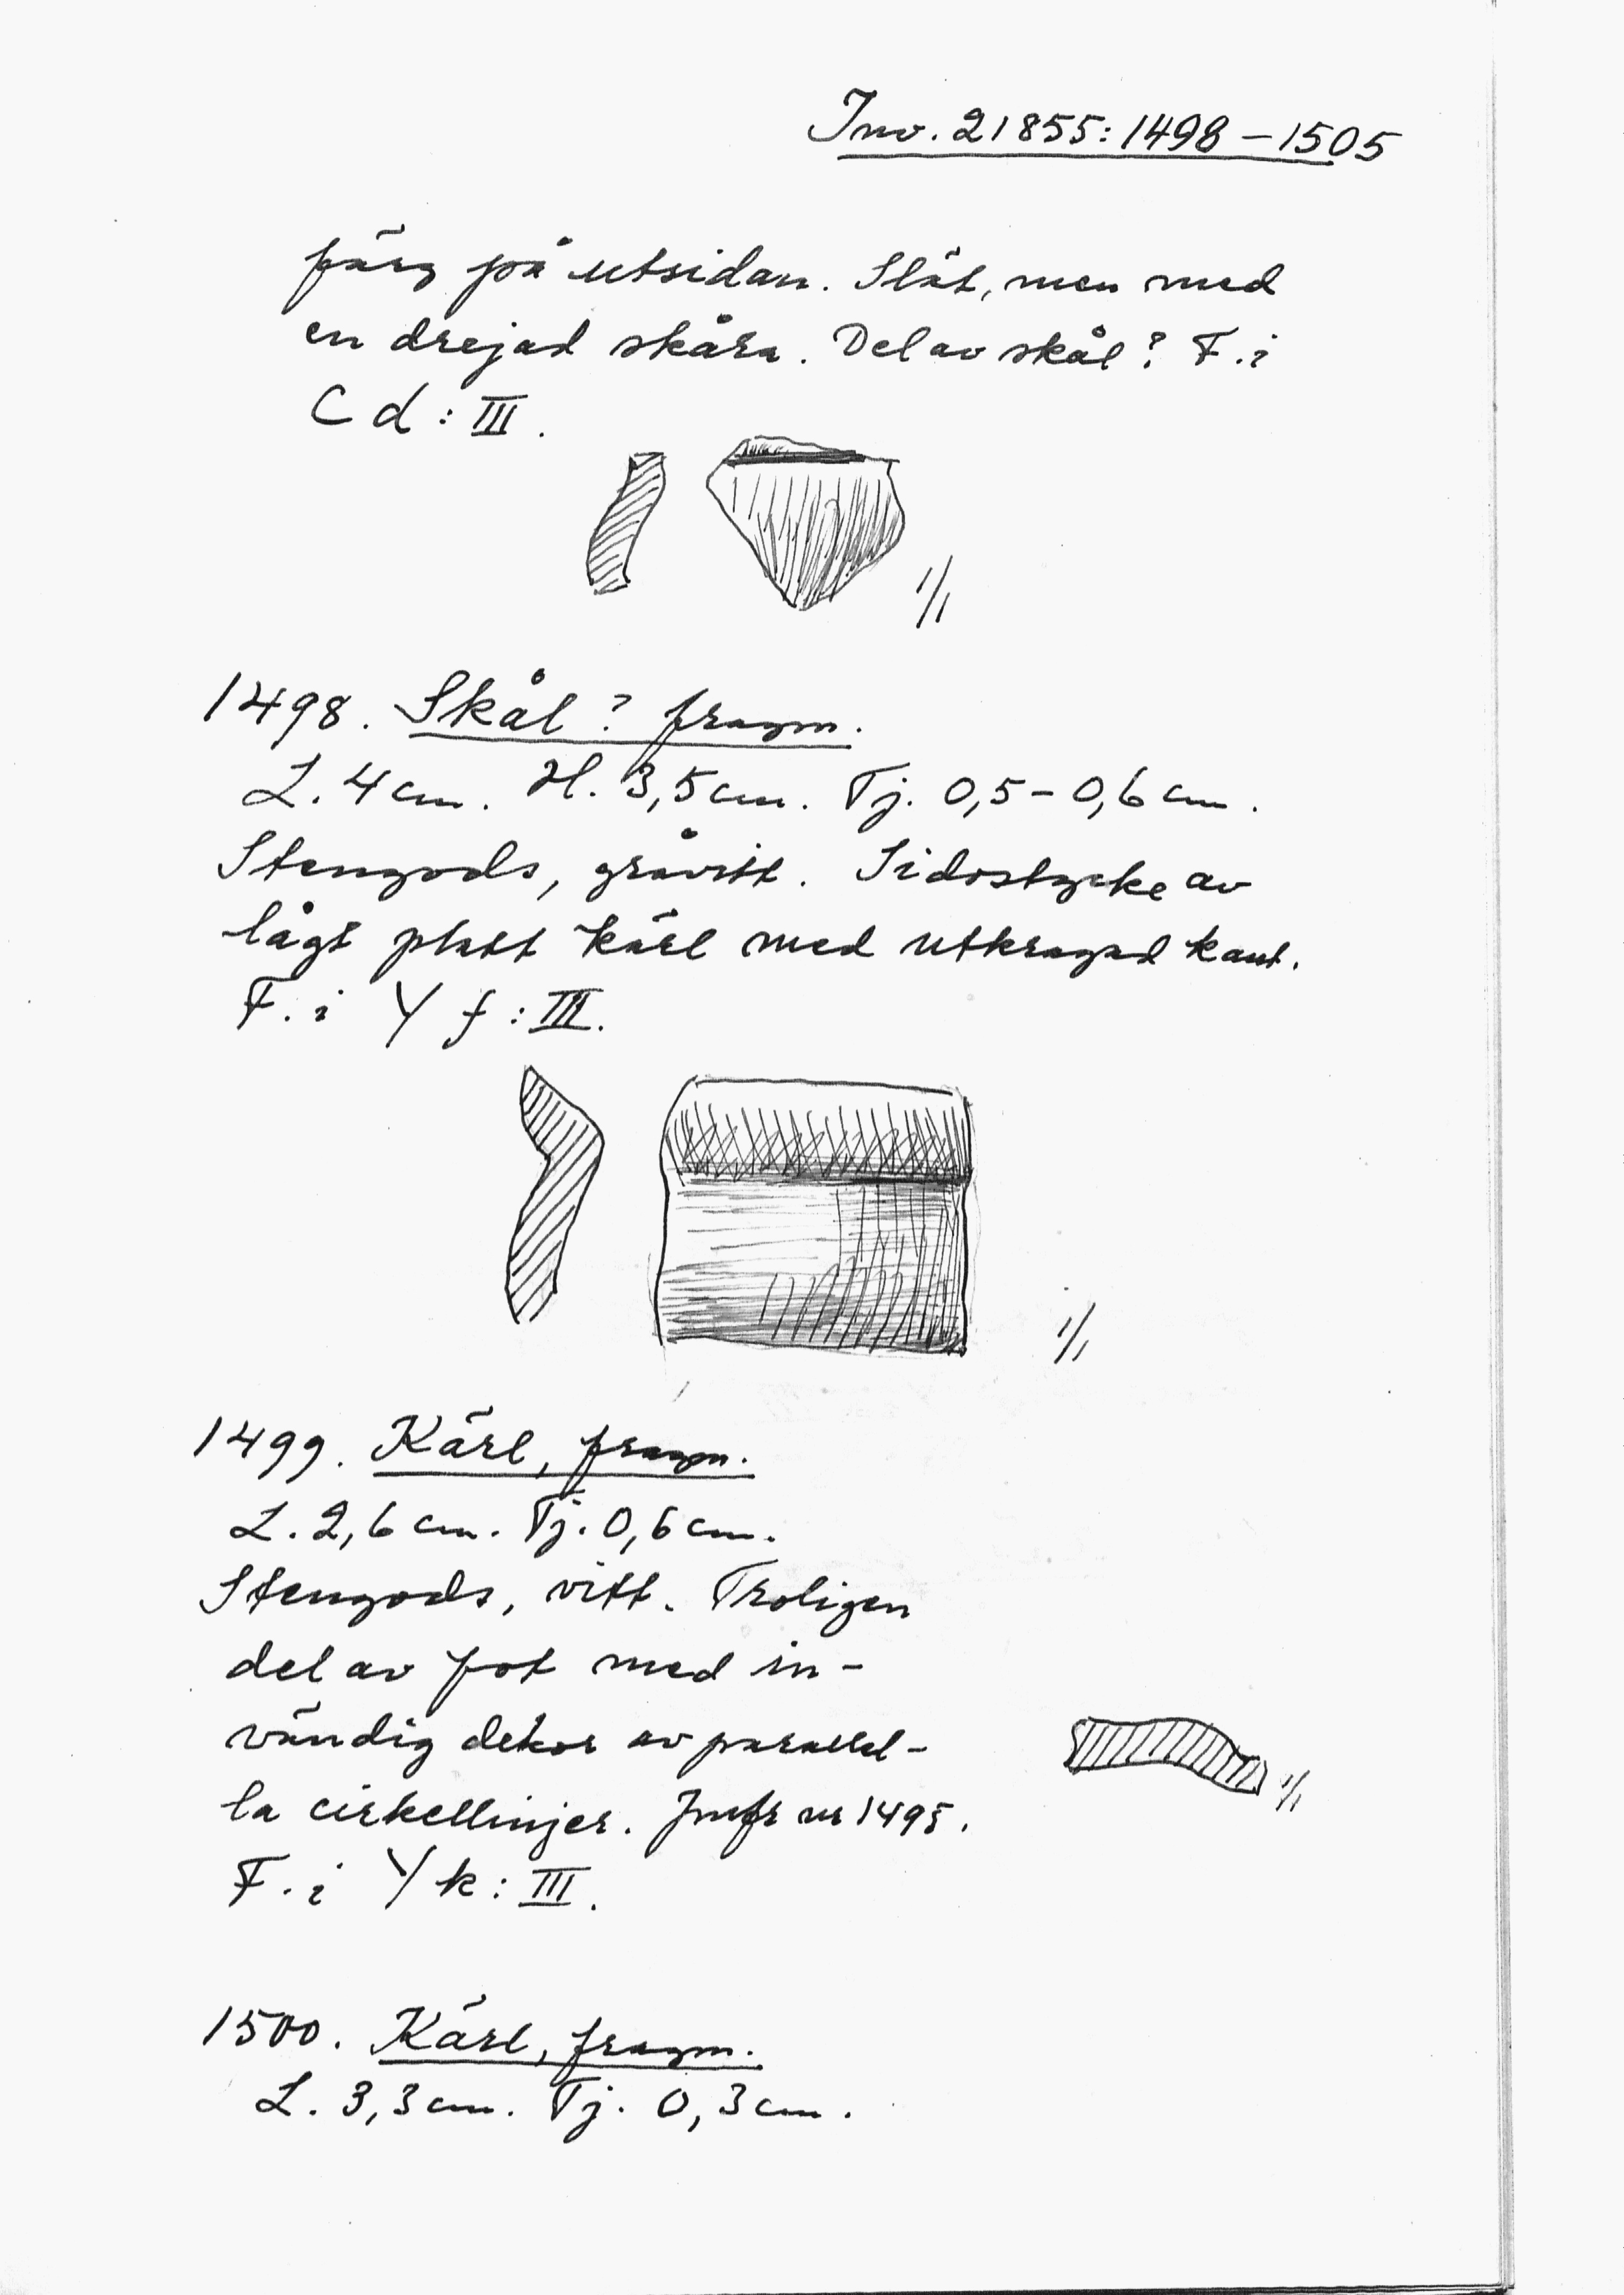 Inv. 21855:1498–1505
färg på utsidan. Slät, men med
en drejad skåra. Del av skål? F. i
C d : III.
1/1
1498. Skål? fragm.
L. 4 cm. H. 3,5 cm. Tj. 0,5 – 0,6 cm.
Stengods, gråvitt. Sidostycke av
lågt platt kärl med utkragad kant.
F. i Y f : III.
1/1
1499. Kärl, fragm.
L. 2,6 cm. Tj. 0,6 cm.
Stengods, vitt. Troligen
del av fot med in-
vändig dekor av parallel-
la cirkellinjer. Jmfr nr 1495.
1/1
F. i Y k : III.
1500. Kärl, fragm.
L. 3,3 cm. Tj. 0,3 cm.